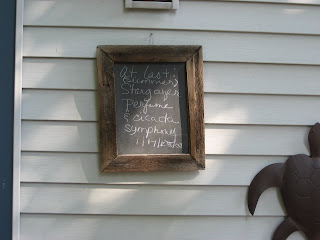 At last
Summer
Stargazer
Perfume
& cicada
Symphony